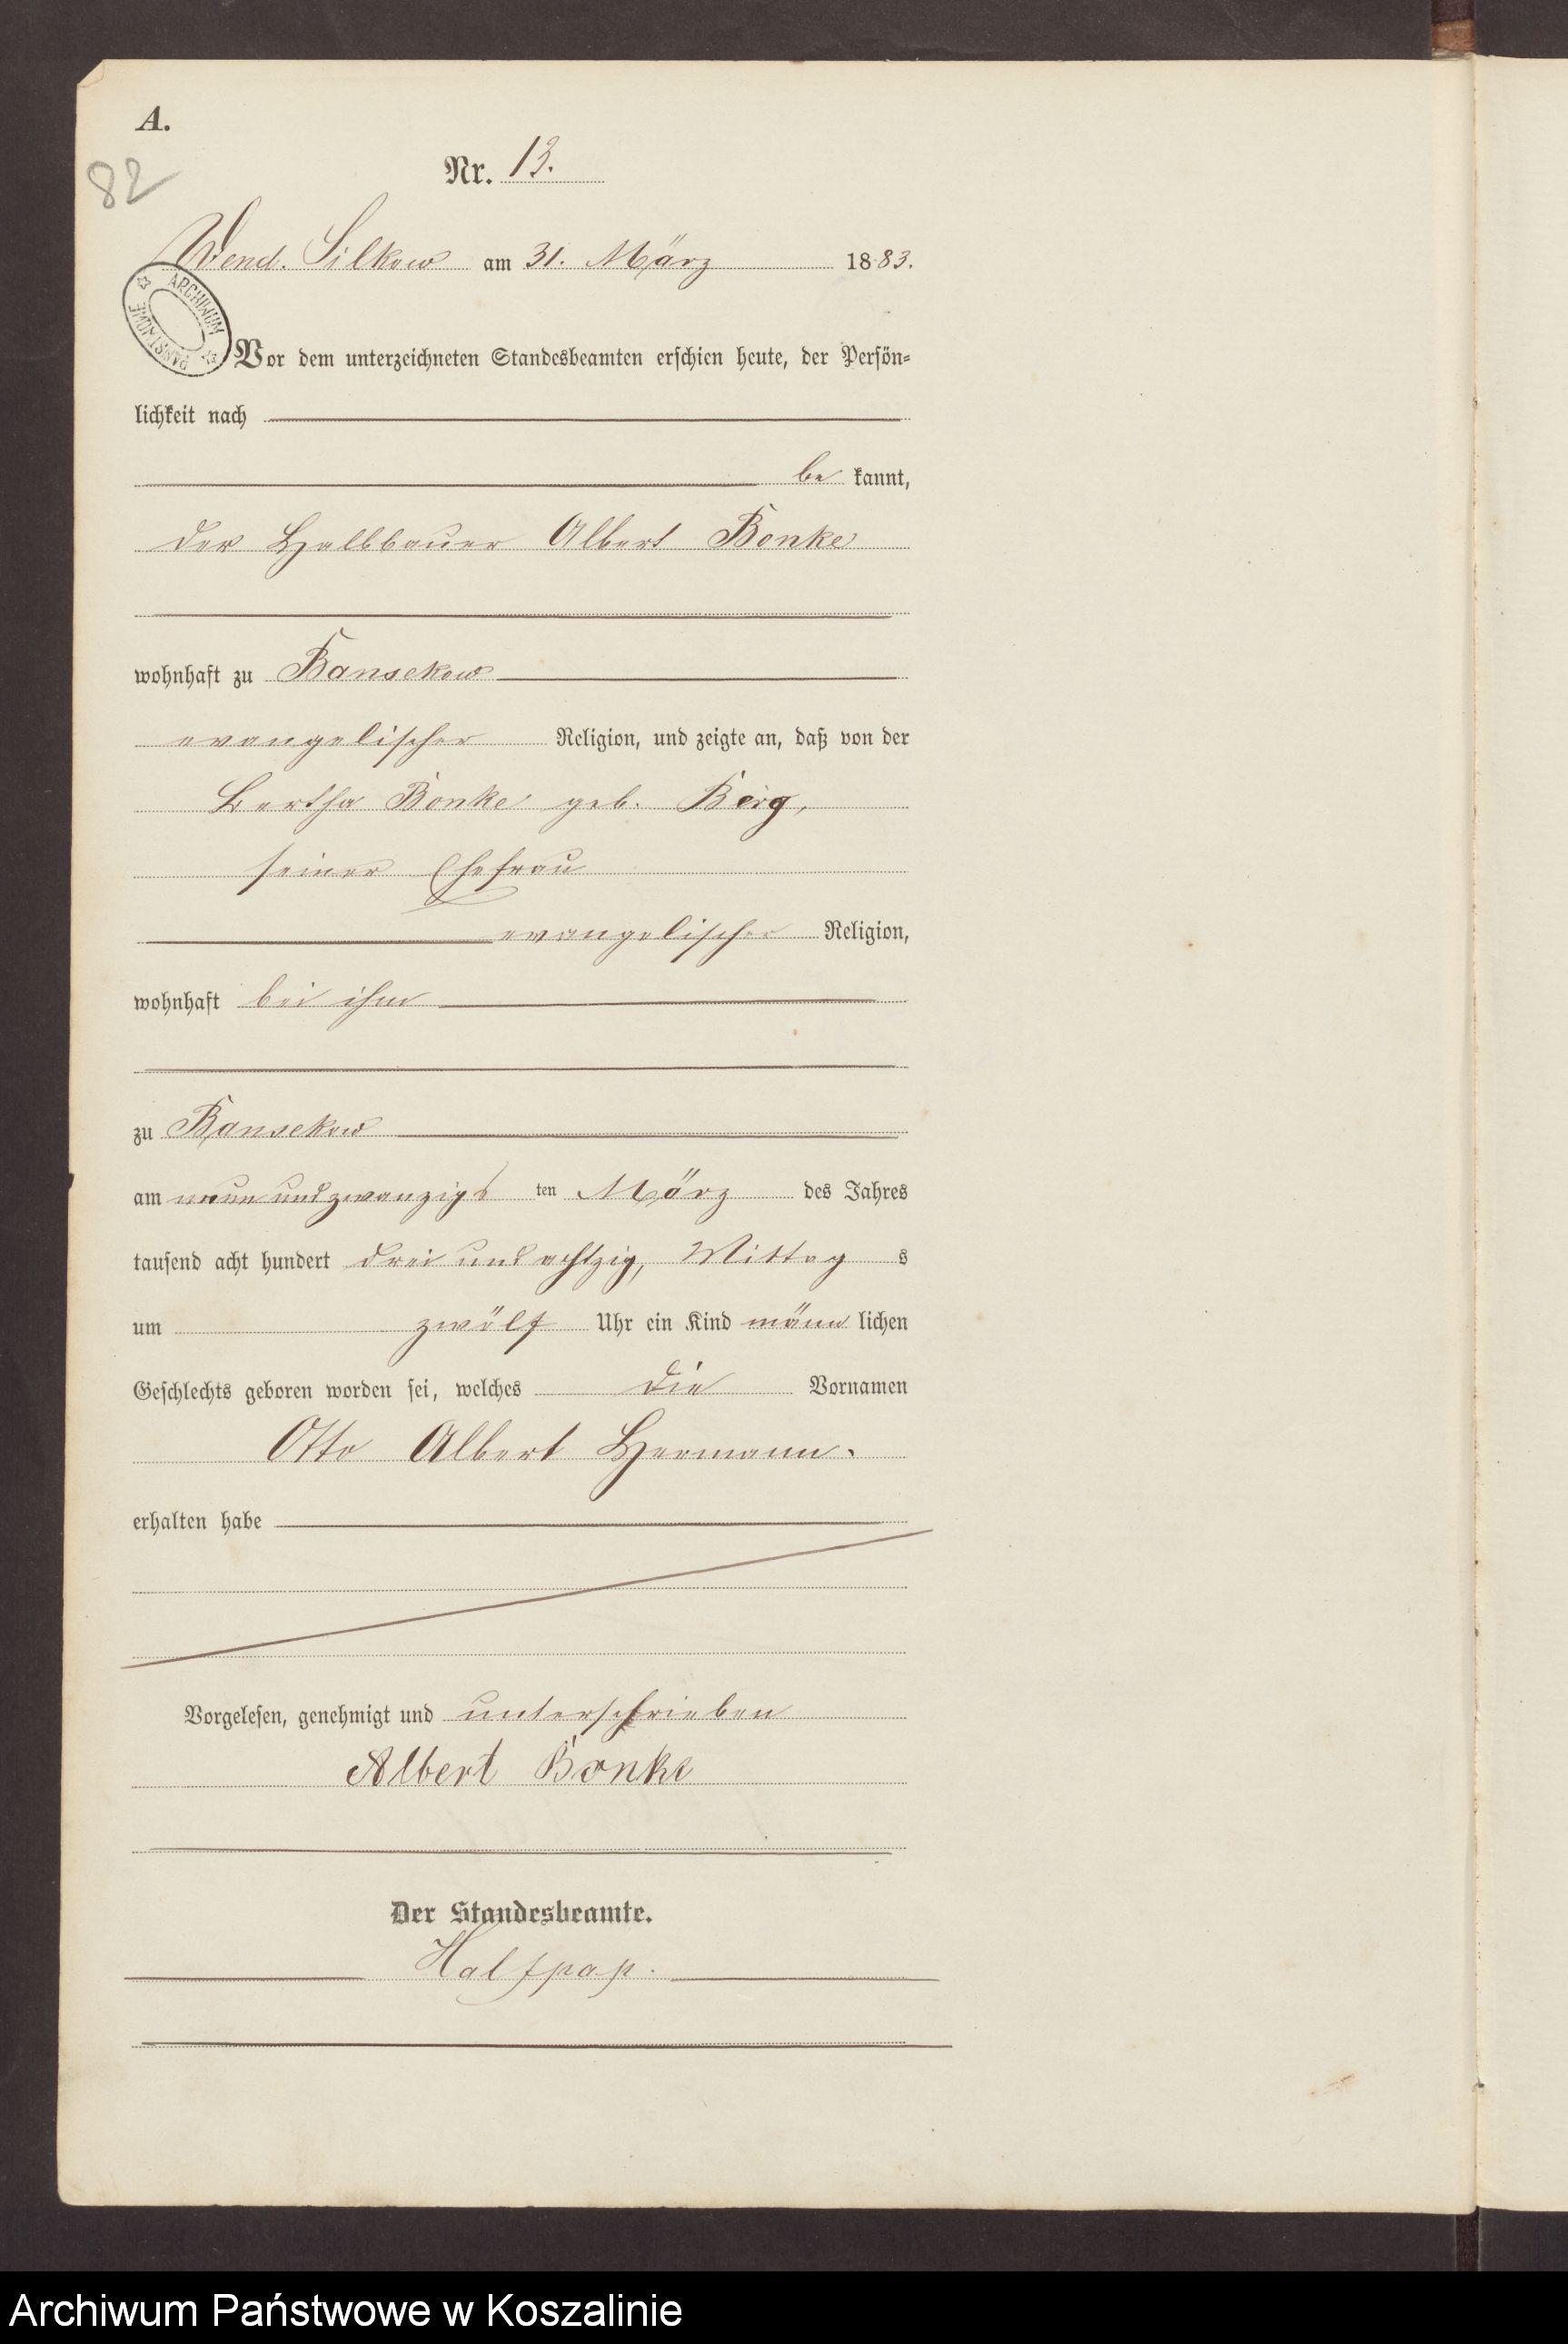 A.
82
Nr. 13.
Wend. Silkow am 31. März 1883.
ARCHIWUM PAŃSTWOWE
Vor dem unterzeichneten Standesbeamten erschien heute, der Persön-
lichkeit nach
be kannt,
der Halbbauer Albert Bonke
wohnhaft zu Bansekow
evangelischer Religion, und zeigte an, daß von der
Bertha Bonke geb. Berg,
seiner Ehefrau
evangelischer Religion,
wohnhaft bei ihm
zu Bansekow
am neunundzwanzigs ten März des Jahres
tausend acht hundert drei und achtzig, Mittag s
um zwölf Uhr ein Kind männ lichen
Geschlechts geboren worden sei, welches die Vornamen
Otto Albert Hermann.
erhalten habe
Vorgelesen, genehmigt und unterschrieben
Albert Bonke
Der Standesbeamte.
Halfpap.
Archiwum Państwowe w Koszalinie